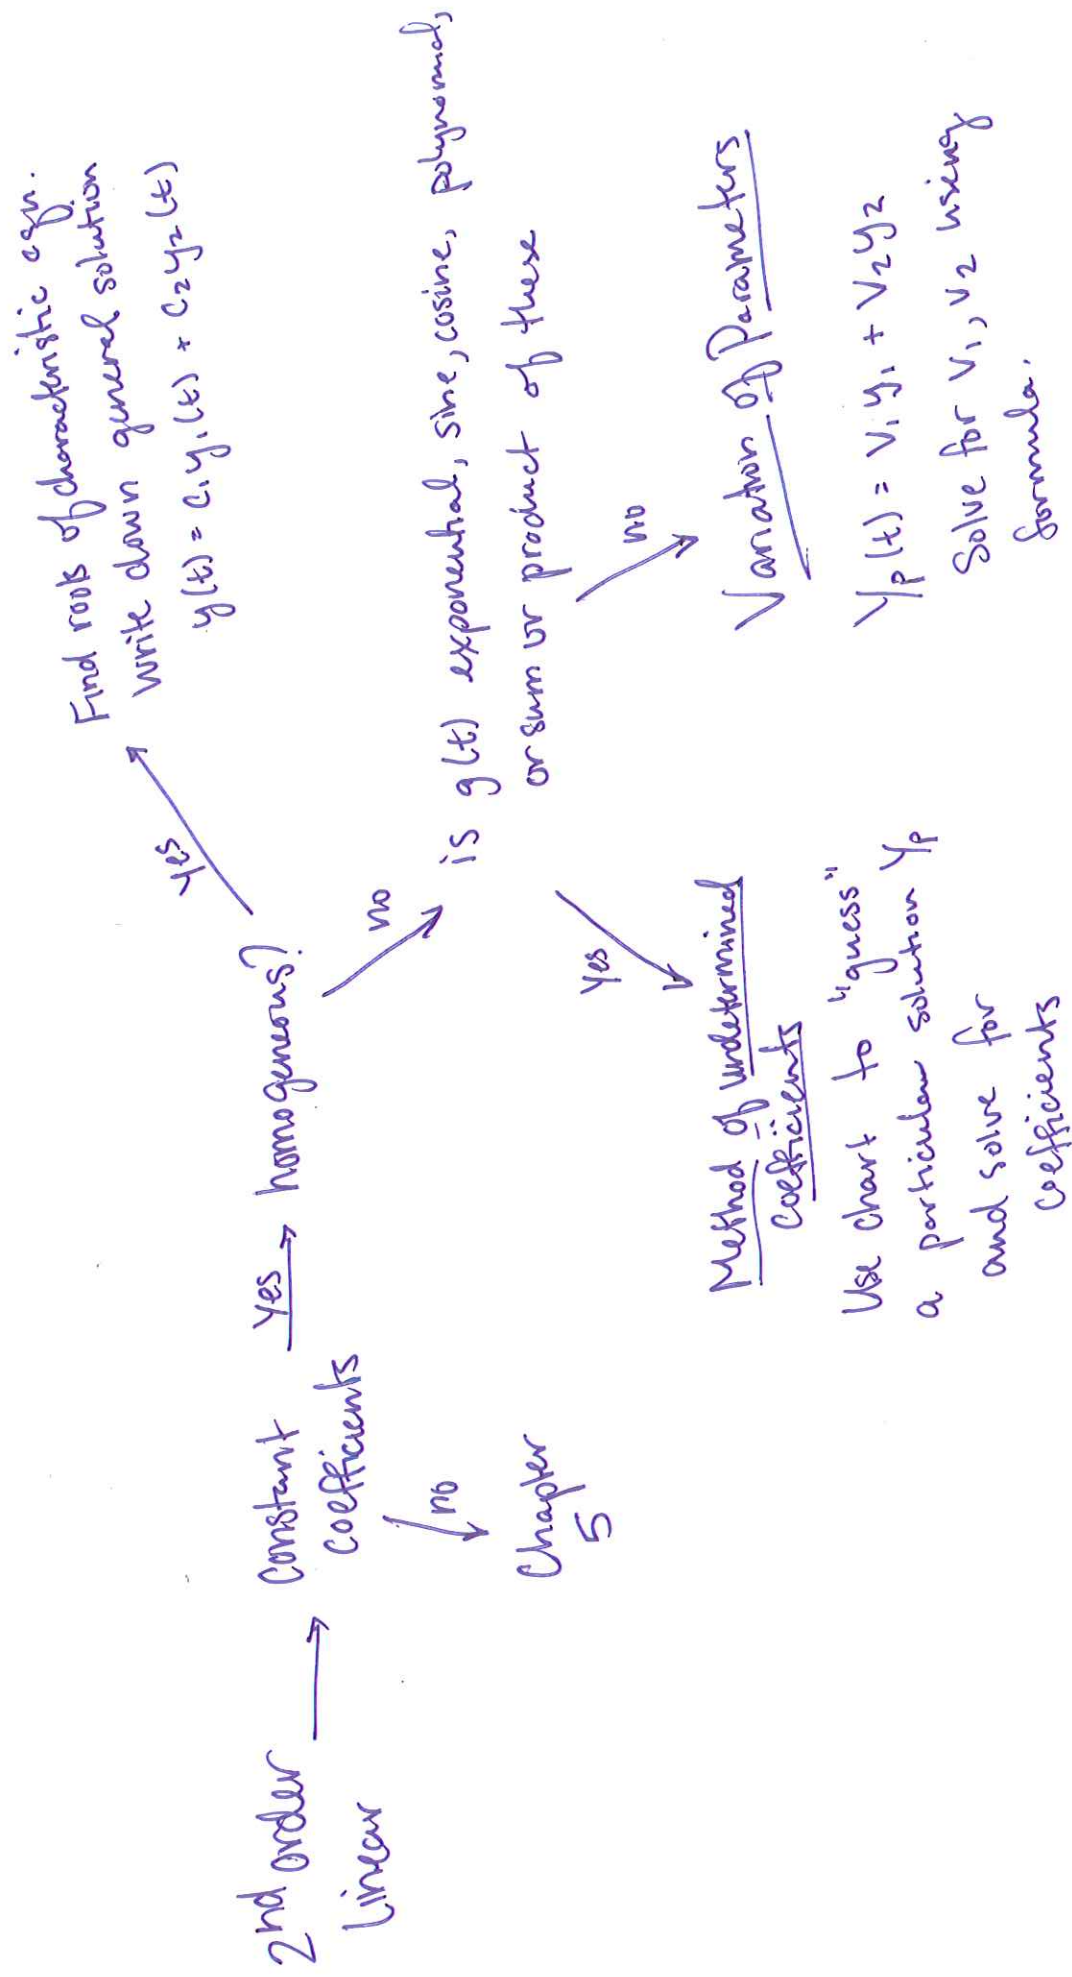 2nd order
Linear
Constant
coefficients
Yes
no
Chapter
5
homogeneous?
Yes
Find roots of characteristic eqn.
Write down general solution
y(t) = c₁y₁(t) + c₂y₂(t)
no
is g(t) exponential, sine, cosine, polynomial,
or sum or product of these
Yes
Method of undetermined
coefficients
Use chart to "guess"
a particular solution Yp
and solve for
coefficients
no
Variation of Parameters
Yp(t) = v₁y₁ + v₂y₂
Solve for v₁, v₂ using
formula.